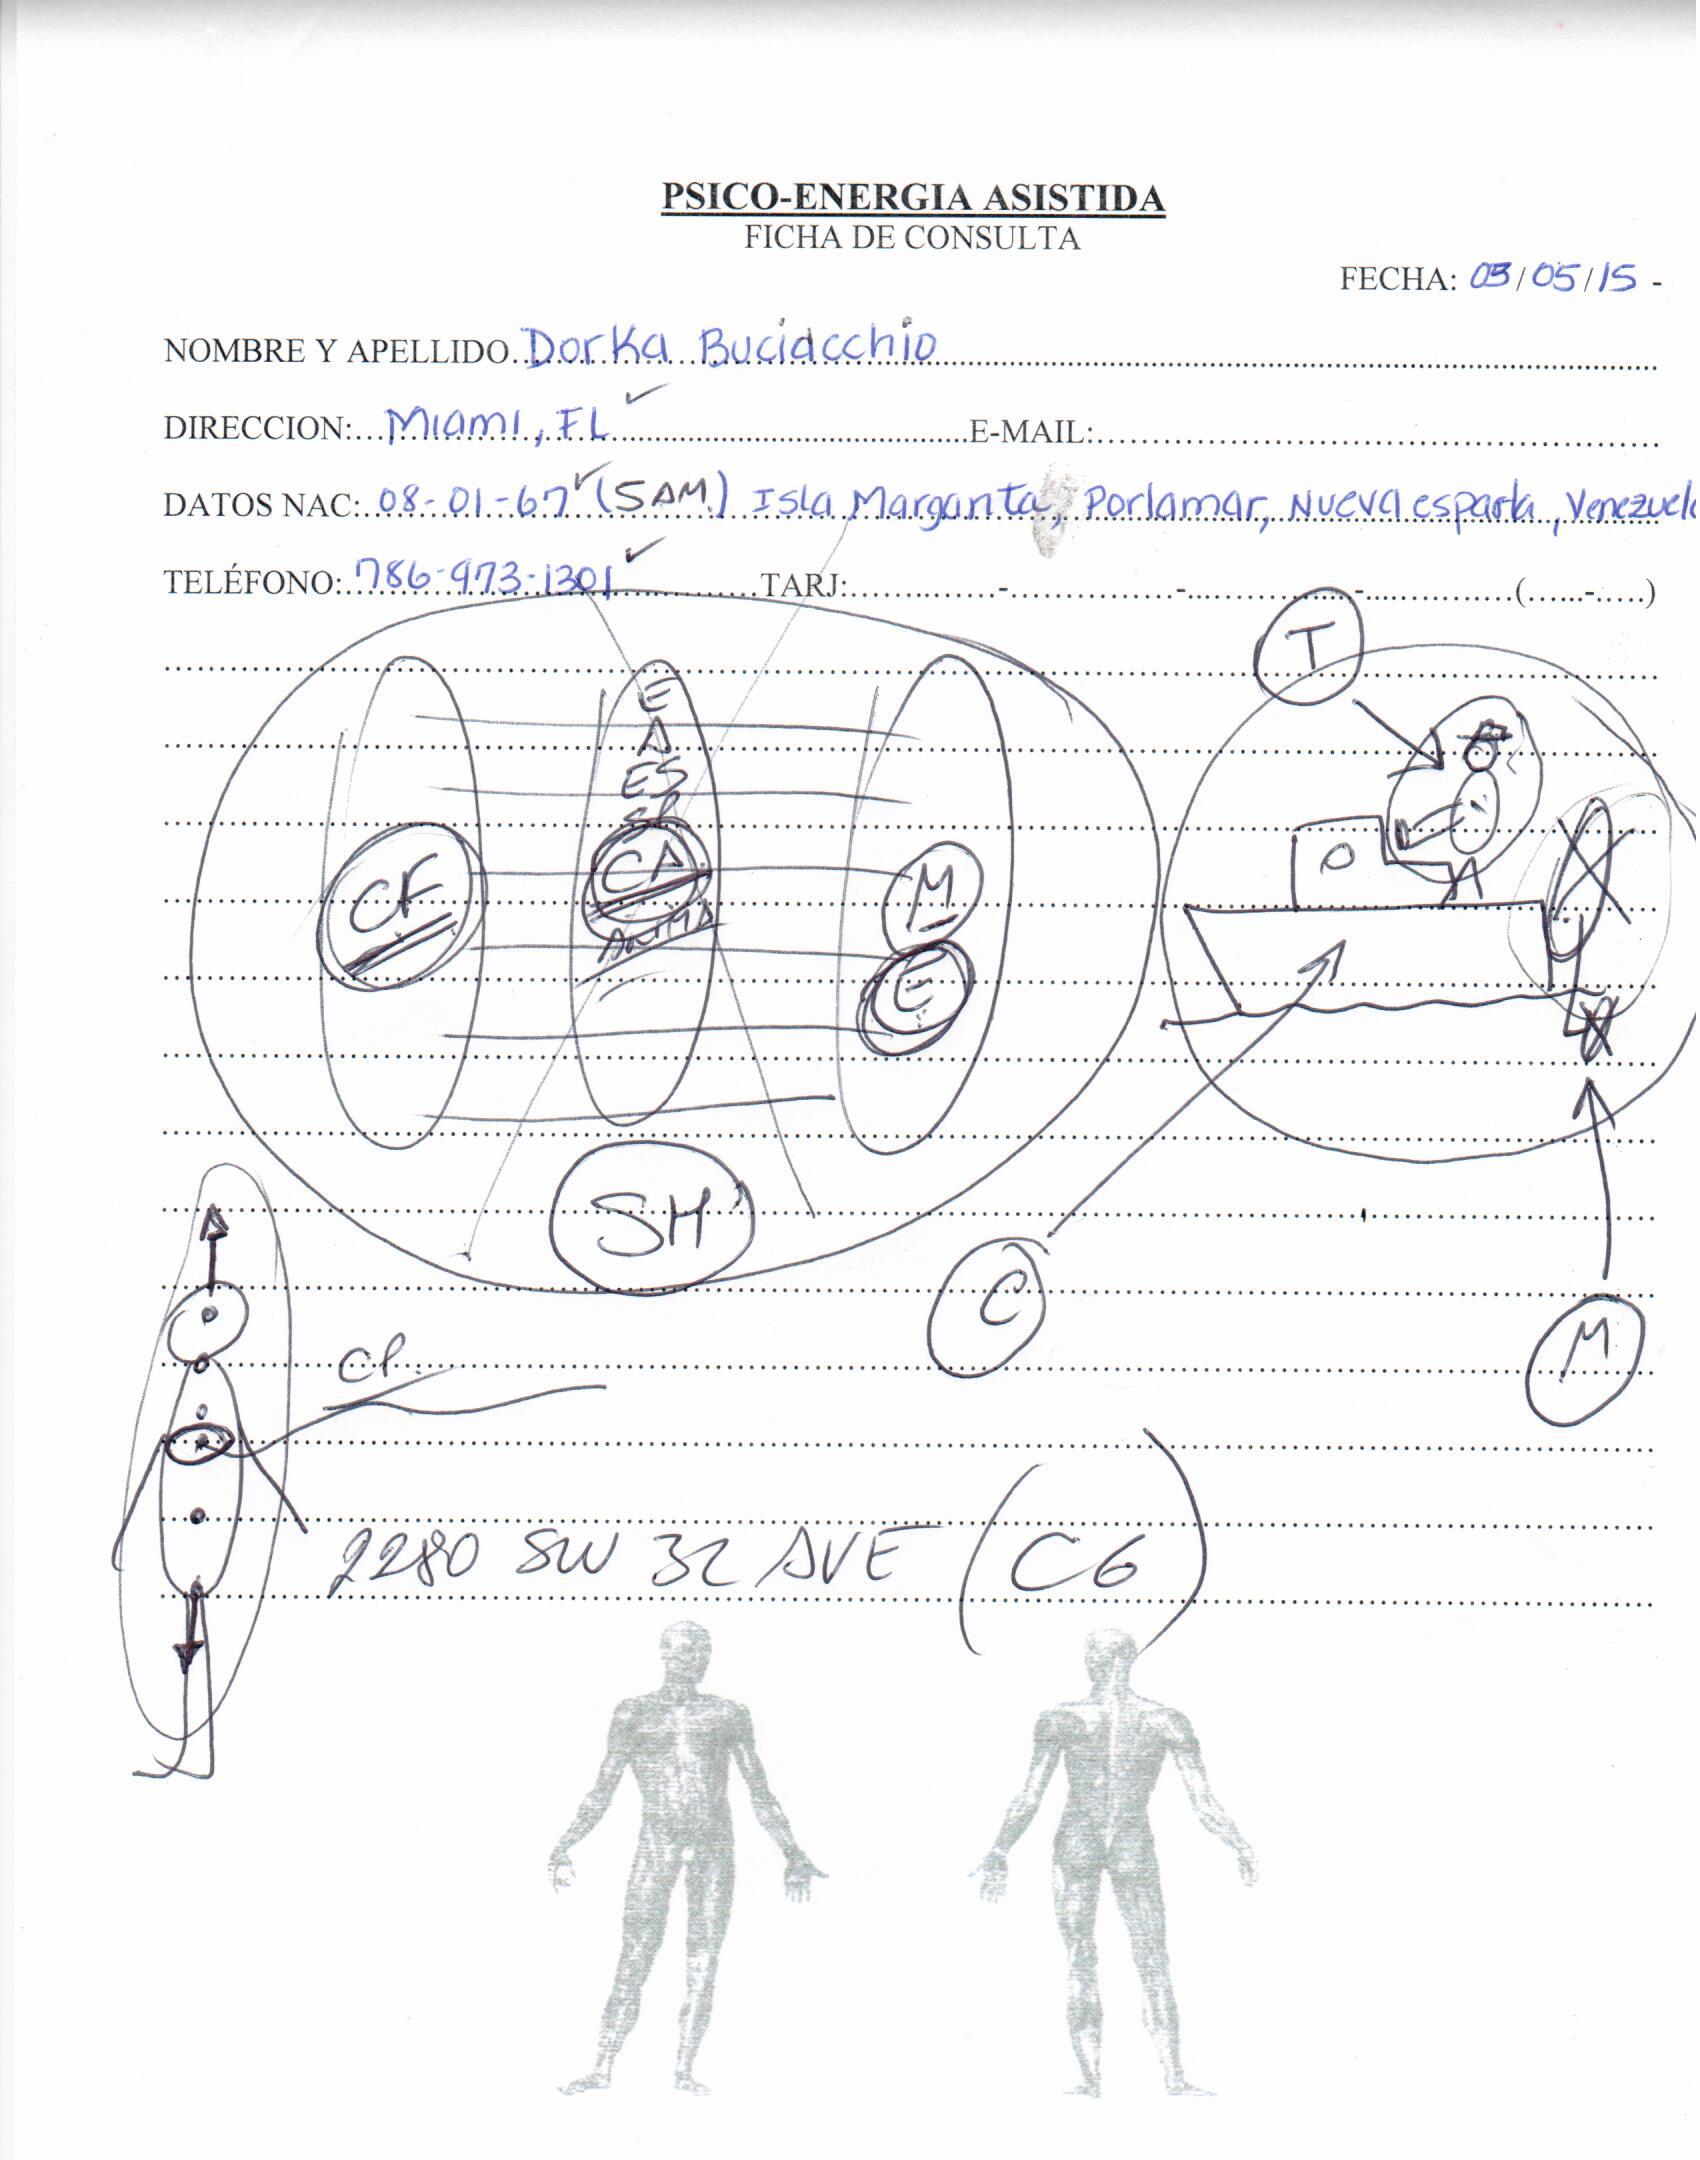 PSICO-ENERGIA ASISTIDA
FICHA DE CONSULTA
FECHA: 03/05/15 -
NOMBRE Y APELLIDO. Dorka Buciacchio
DIRECCION: Miami, FL E-MAIL:
DATOS NAC: 08-01-67 (5 AM.) Isla Margarita, Porlamar, Nueva esparta, Venezuela
TELÉFONO: 786-973-1301 TARJ: - - - ( - )
T
E
A
ES
CF
CA
M
E
SH
C
M
CP.
2280 SW 32 AVE (C6)